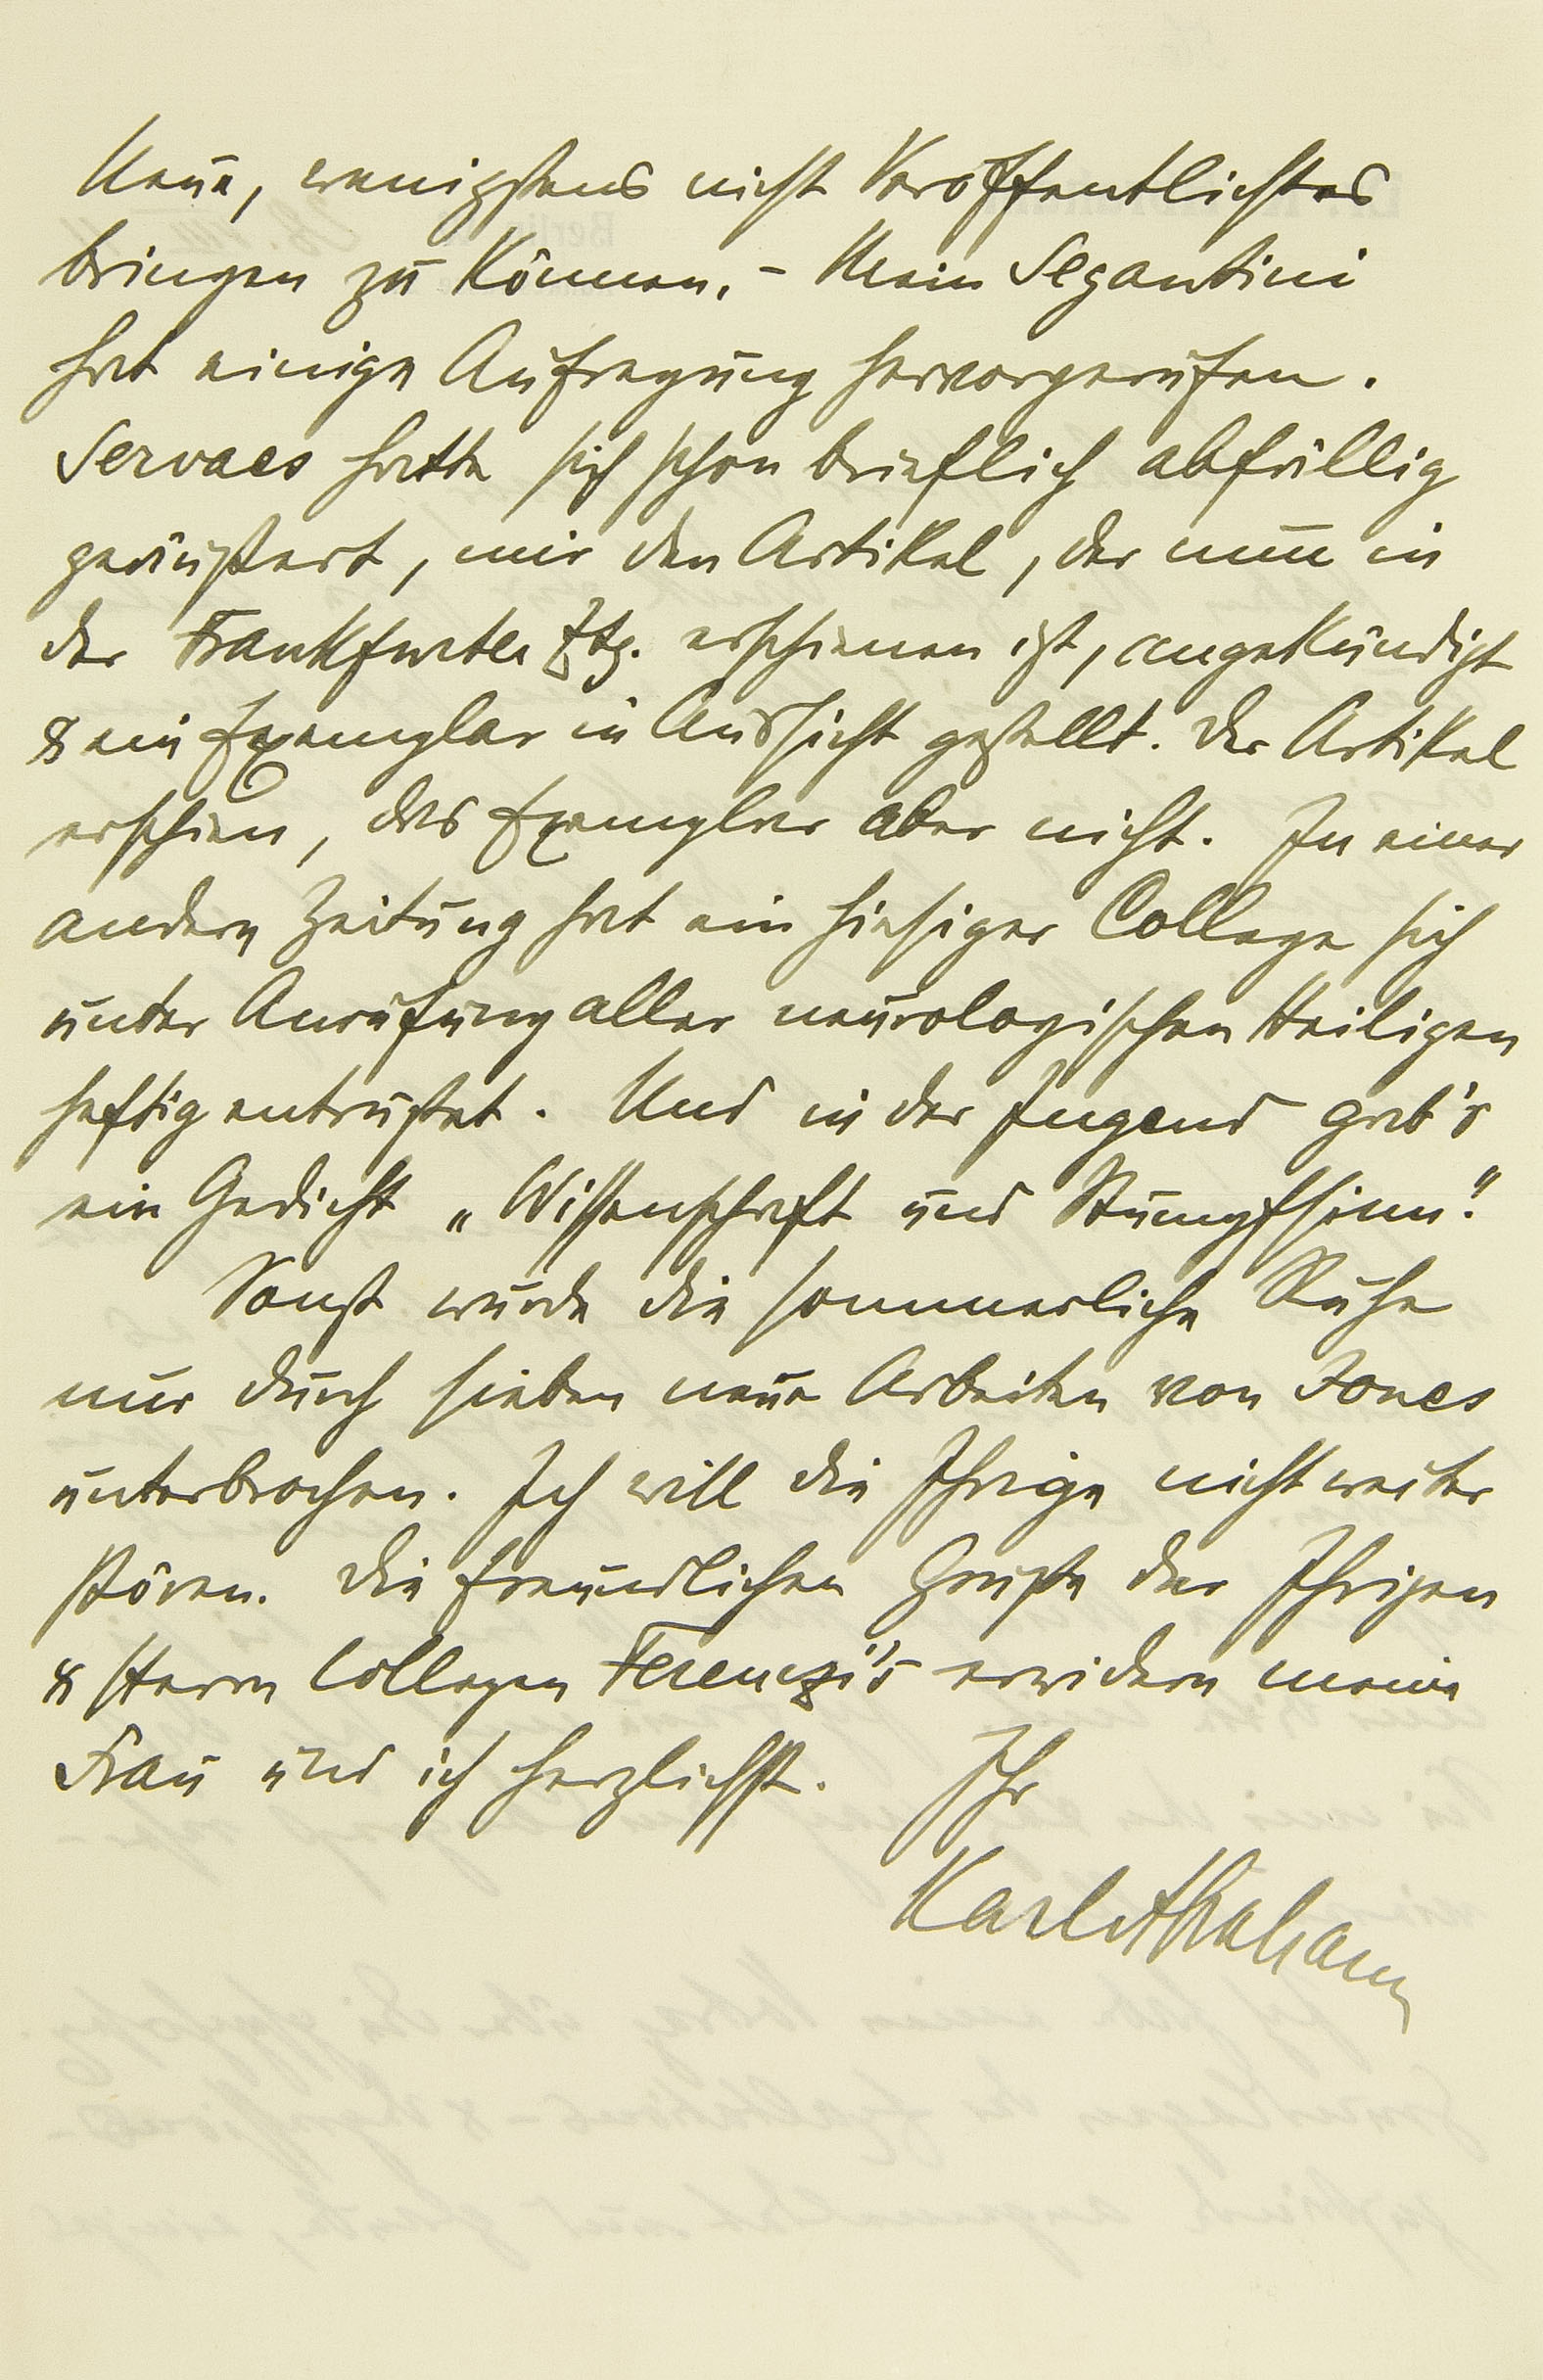 Neue, wenigstens nicht Veröffentlichtes
bringen zu können. – Mein Segantini
hat einige Aufregung hervorgerufen.
Servaes hatte sich schon brieflich abfällig
geäußert, mir den Artikel, der nun in
der Frankfurter Ztg. erschienen ist, angekündigt
& ein Exemplar in Aussicht gestellt. Der Artikel
erschien, das Exemplar aber nicht. In einer
andern Zeitung hat ein hiesiger Collega sich
unter Anrufung aller neurologischen Heiligen
heftig entrüstet. Und in der Jugend gab's
ein Gedicht „Wissenschaft und Stumpfsinn“.
Sonst wurde die sommerliche Ruhe
nur durch sieben neue Arbeiten von Jones
unterbrochen. Ich will die Ihrige nicht weiter
stören. Die freundlichen Grüße der Ihrigen
& Herrn Collegen Ferenczi's erwidern meine
Frau und ich herzlichst. Ihr
Karl Abraham